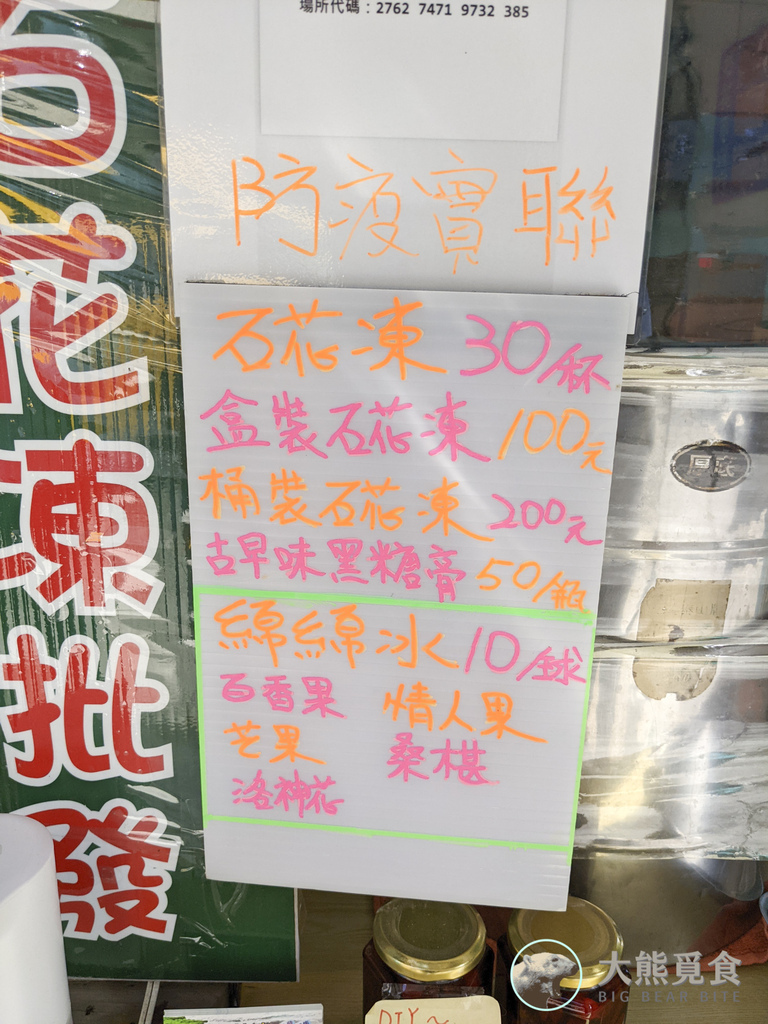 場所代碼：2762 7471 9732 385
防疫實聯
石花凍 30/杯
盒裝石花凍 100元
桶裝石花凍 200元
古早味黑糖膏 50/瓶
綿綿冰 10/球
百香果 情人果
芒果 桑椹
洛神花
石花凍批發
DIY~
大熊覓食
BIG BEAR BITE